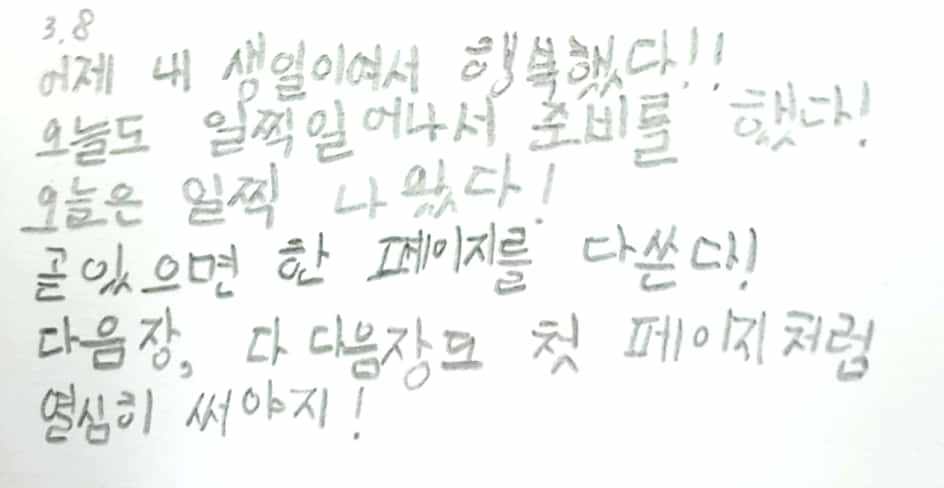 3.8
어제 내 생일이여서 행복했다!!
오늘도 일찍일어나서 준비를 했다!
오늘은 일찍 나왔다!
곧있으면 한 페이지를 다쓴다!
다음장, 다다음장도 첫 페이지처럼
열심히 써야지!